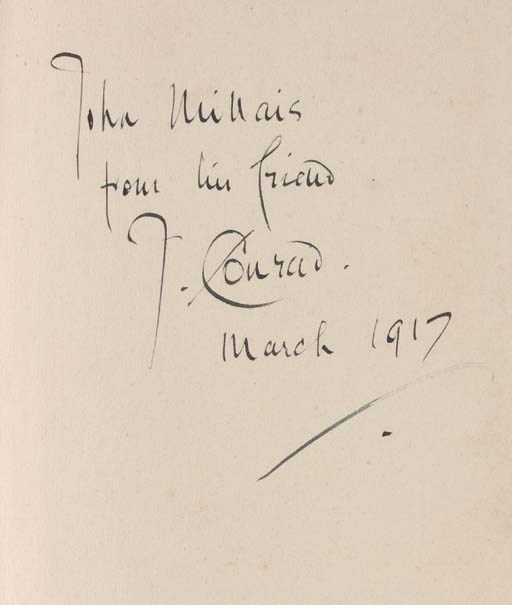 John Millais
from his friend
J. Conrad.
March 1917